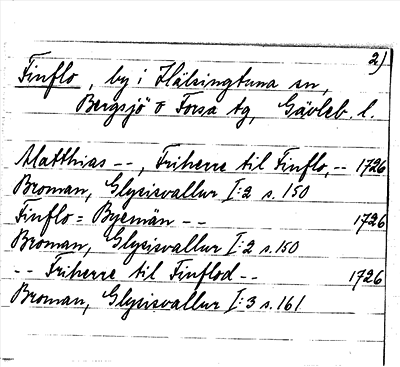 2)
Finflo, by i Hälsingtuna sn,
Bergsjö o Forsa tg, Gävleb. l.
Matthias --, Friherre til Finflo, -- 1726
Broman, Glysisvallur I:2 s. 150
Finflo = Byemän -- 1726
Broman, Glysisvallur I:2 s. 150
-- Friherre til Finflod -- 1726
Broman, Glysisvallur I:3 s. 161